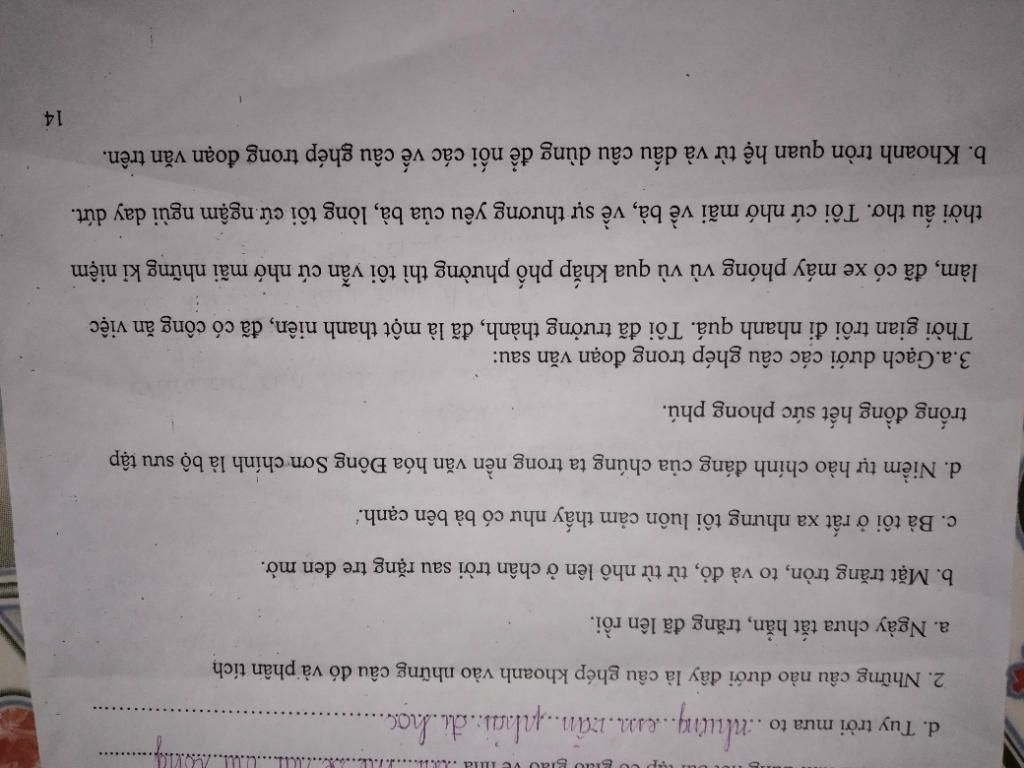 tập cô giáo giao về nhà
d. Tuy trời mưa to ..nhưng..em..vẫn..phải..đi..học
2. Những câu nào dưới đây là câu ghép khoanh vào những câu đó và phân tích
a. Ngày chưa tắt hẳn, trăng đã lên rồi.
b. Mặt trăng tròn, to và đỏ, từ từ nhô lên ở chân trời sau rặng tre đen mờ.
c. Bà tôi ở rất xa nhưng tôi luôn cảm thấy như có bà bên cạnh.
d. Niềm tự hào chính đáng của chúng ta trong nền văn hóa Đông Sơn chính là bộ sưu tập
trống đồng hết sức phong phú.
3.a.Gạch dưới các câu ghép trong đoạn văn sau:
Thời gian trôi đi nhanh quá. Tôi đã trưởng thành, đã là một thanh niên, đã có công ăn việc
làm, đã có xe máy phóng vù vù qua khắp phố phường thì tôi vẫn cứ nhớ mãi những kỉ niệm
thời ấu thơ. Tôi cứ nhớ mãi về bà, về sự thương yêu của bà, lòng tôi cứ ngậm ngùi day dứt.
b. Khoanh tròn quan hệ từ và dấu câu dùng để nối các vế câu ghép trong đoạn văn trên.
14